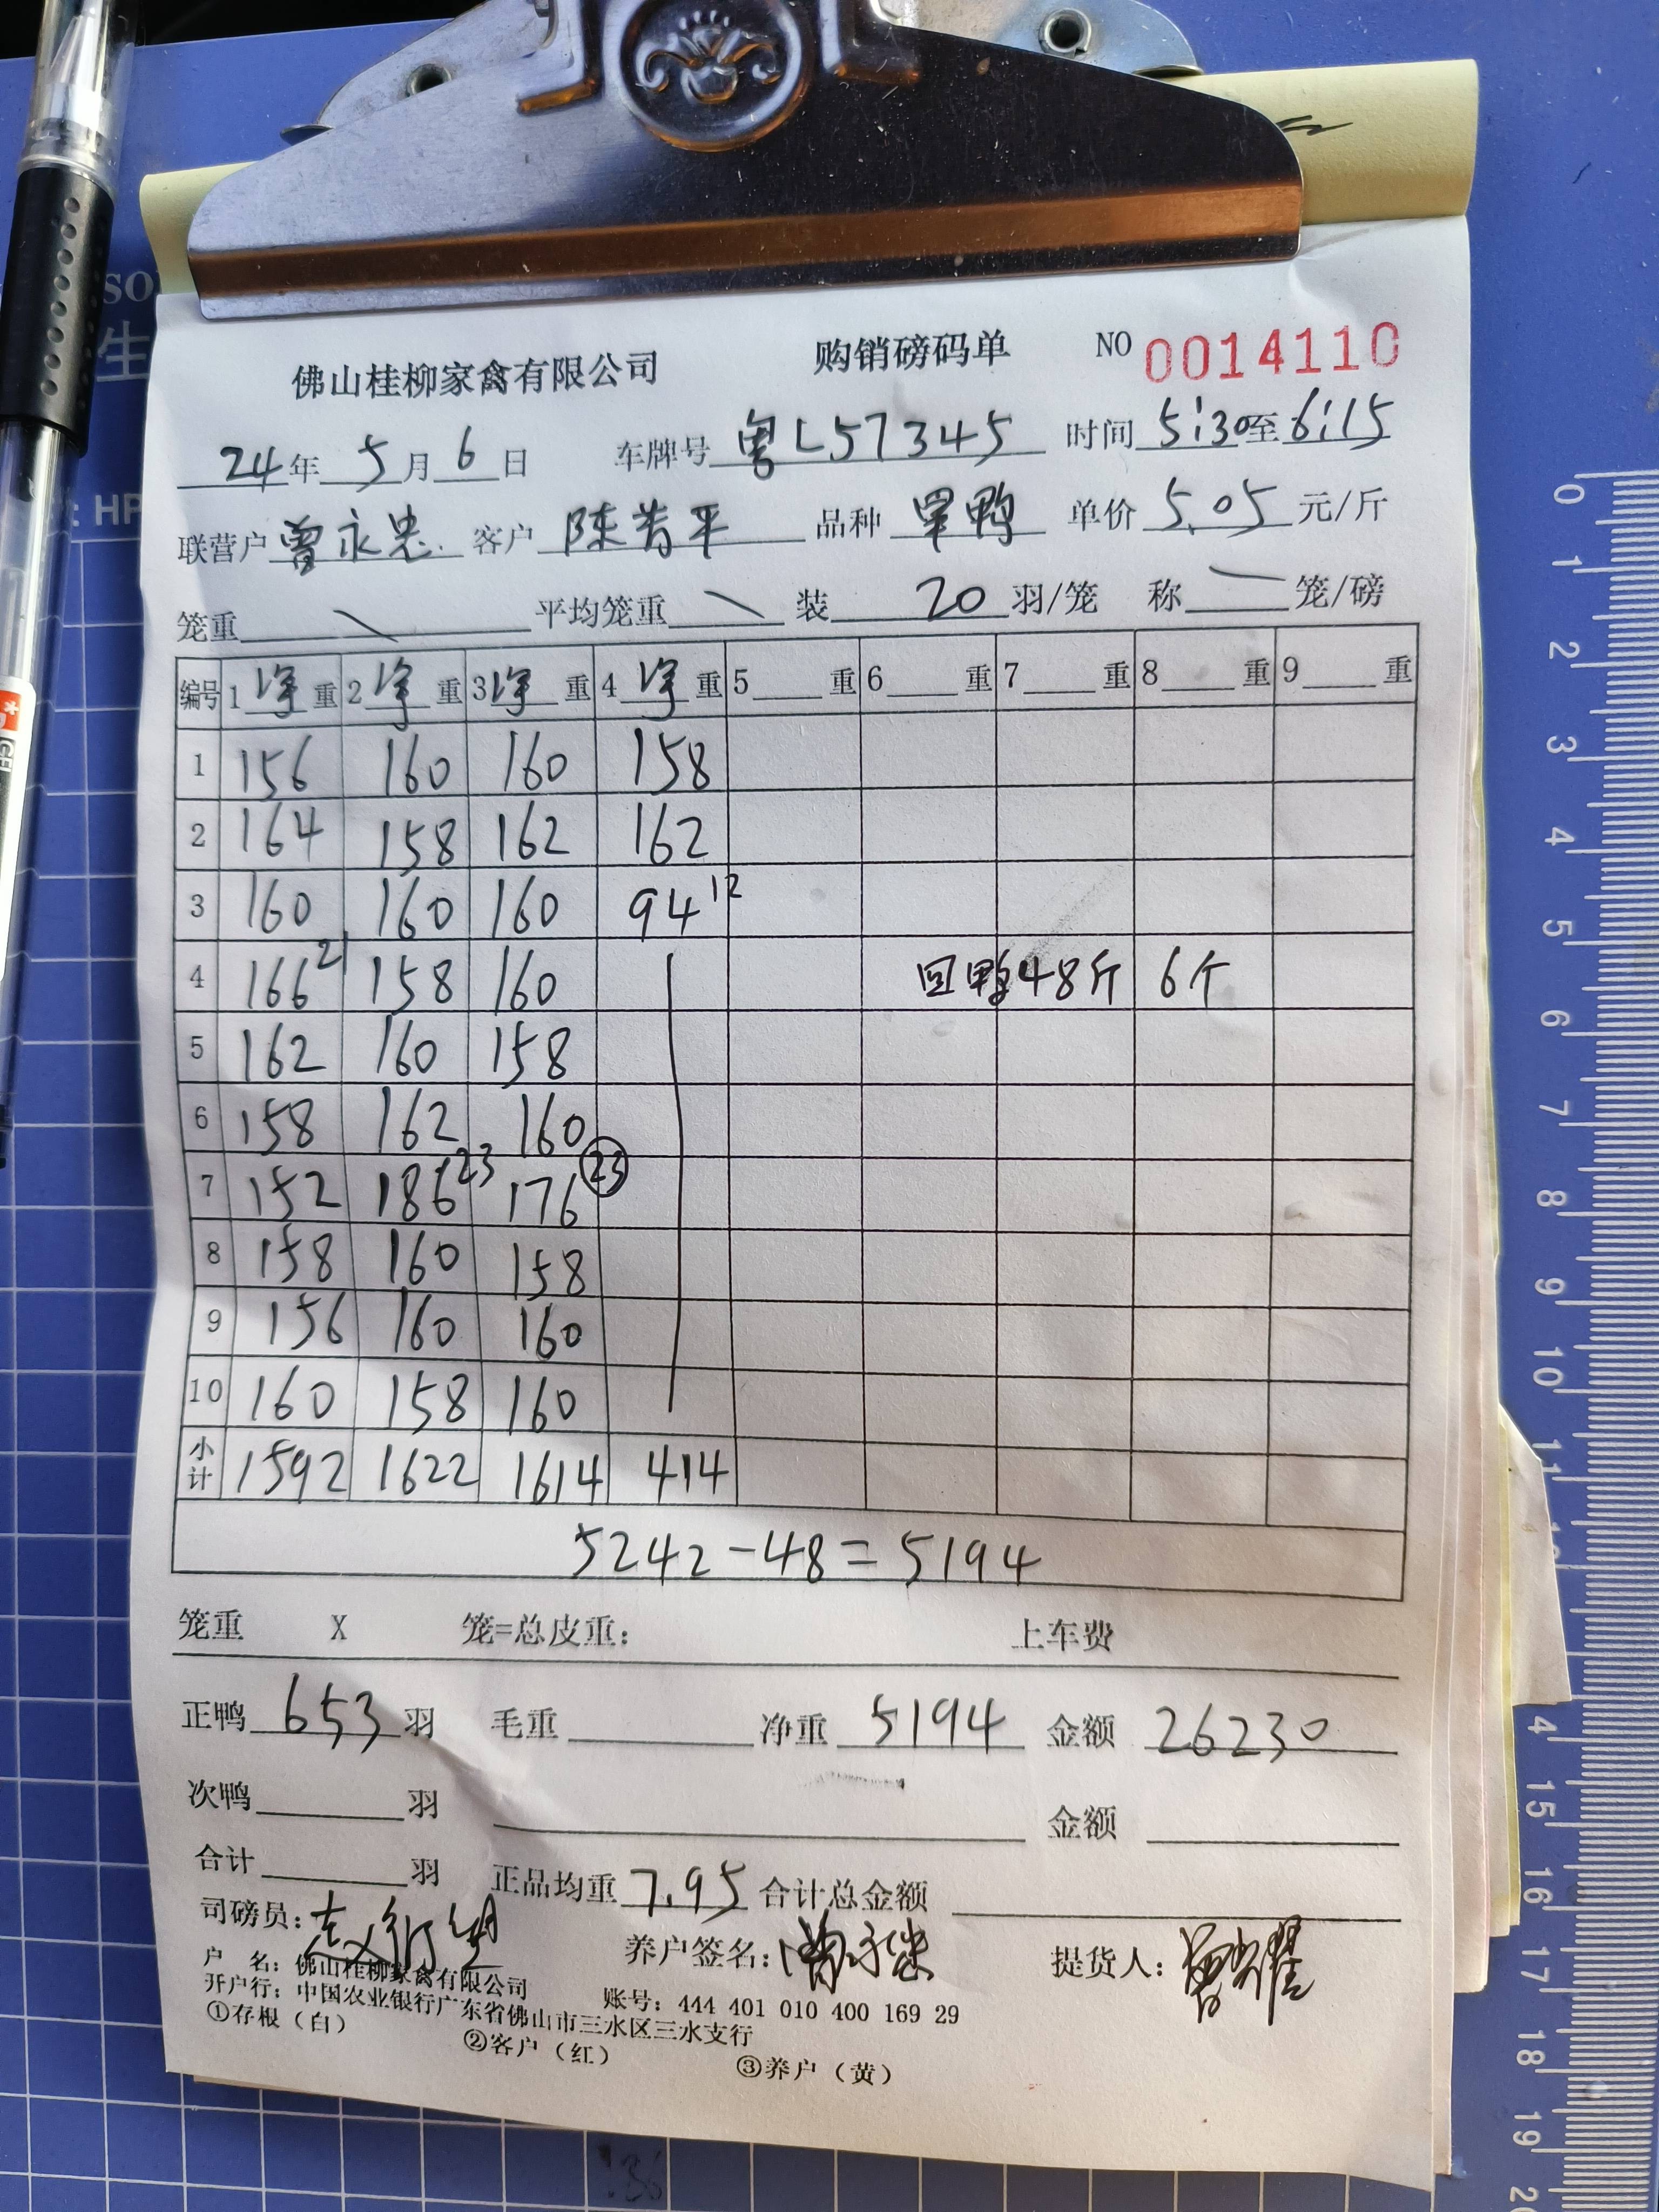 佛山桂柳家禽有限公司 购销磅码单 NO 0014110
24年 5月 6日 车牌号 粤L57345 时间 5:30至6:15
联营户 曾永忠 客户 陈 平 品种 鸭 单价 5.05 元/斤
笼重 \ 平均笼重 \ 装 20 羽/笼 称 — 笼/磅
编号 1净重 2净重 3净重 4净重 5 重 6 重 7 重 8 重 9 重
1 156 160 160 158
2 164 158 162 162
3 160 160 160 94 12
4 166 21 158 160 回鸭48斤 6个
5 162 160 158
6 158 162 160
7 152 186 23 176 23
8 158 160 158
9 156 160 160
10 160 158 160
小计 1592 1622 1614 414
5242-48=5194
笼重 X 笼=总皮重: 上车费
正鸭 653 羽 毛重 净重 5194 金额 26230
次鸭 羽 金额
合计 羽 正品均重 7.95 合计总金额
司磅员: 养户签名: 曾永忠 提货人:
户 名: 佛山桂柳家禽有限公司 账号: 444 401 010 400 169 29
开户行: 中国农业银行广东省佛山市三水区三水支行
①存根(白) ②客户(红) ③养户(黄)
生
HP
0
1
2
3
4
5
6
7
8
9
10
11
4
15
16
17
18
19